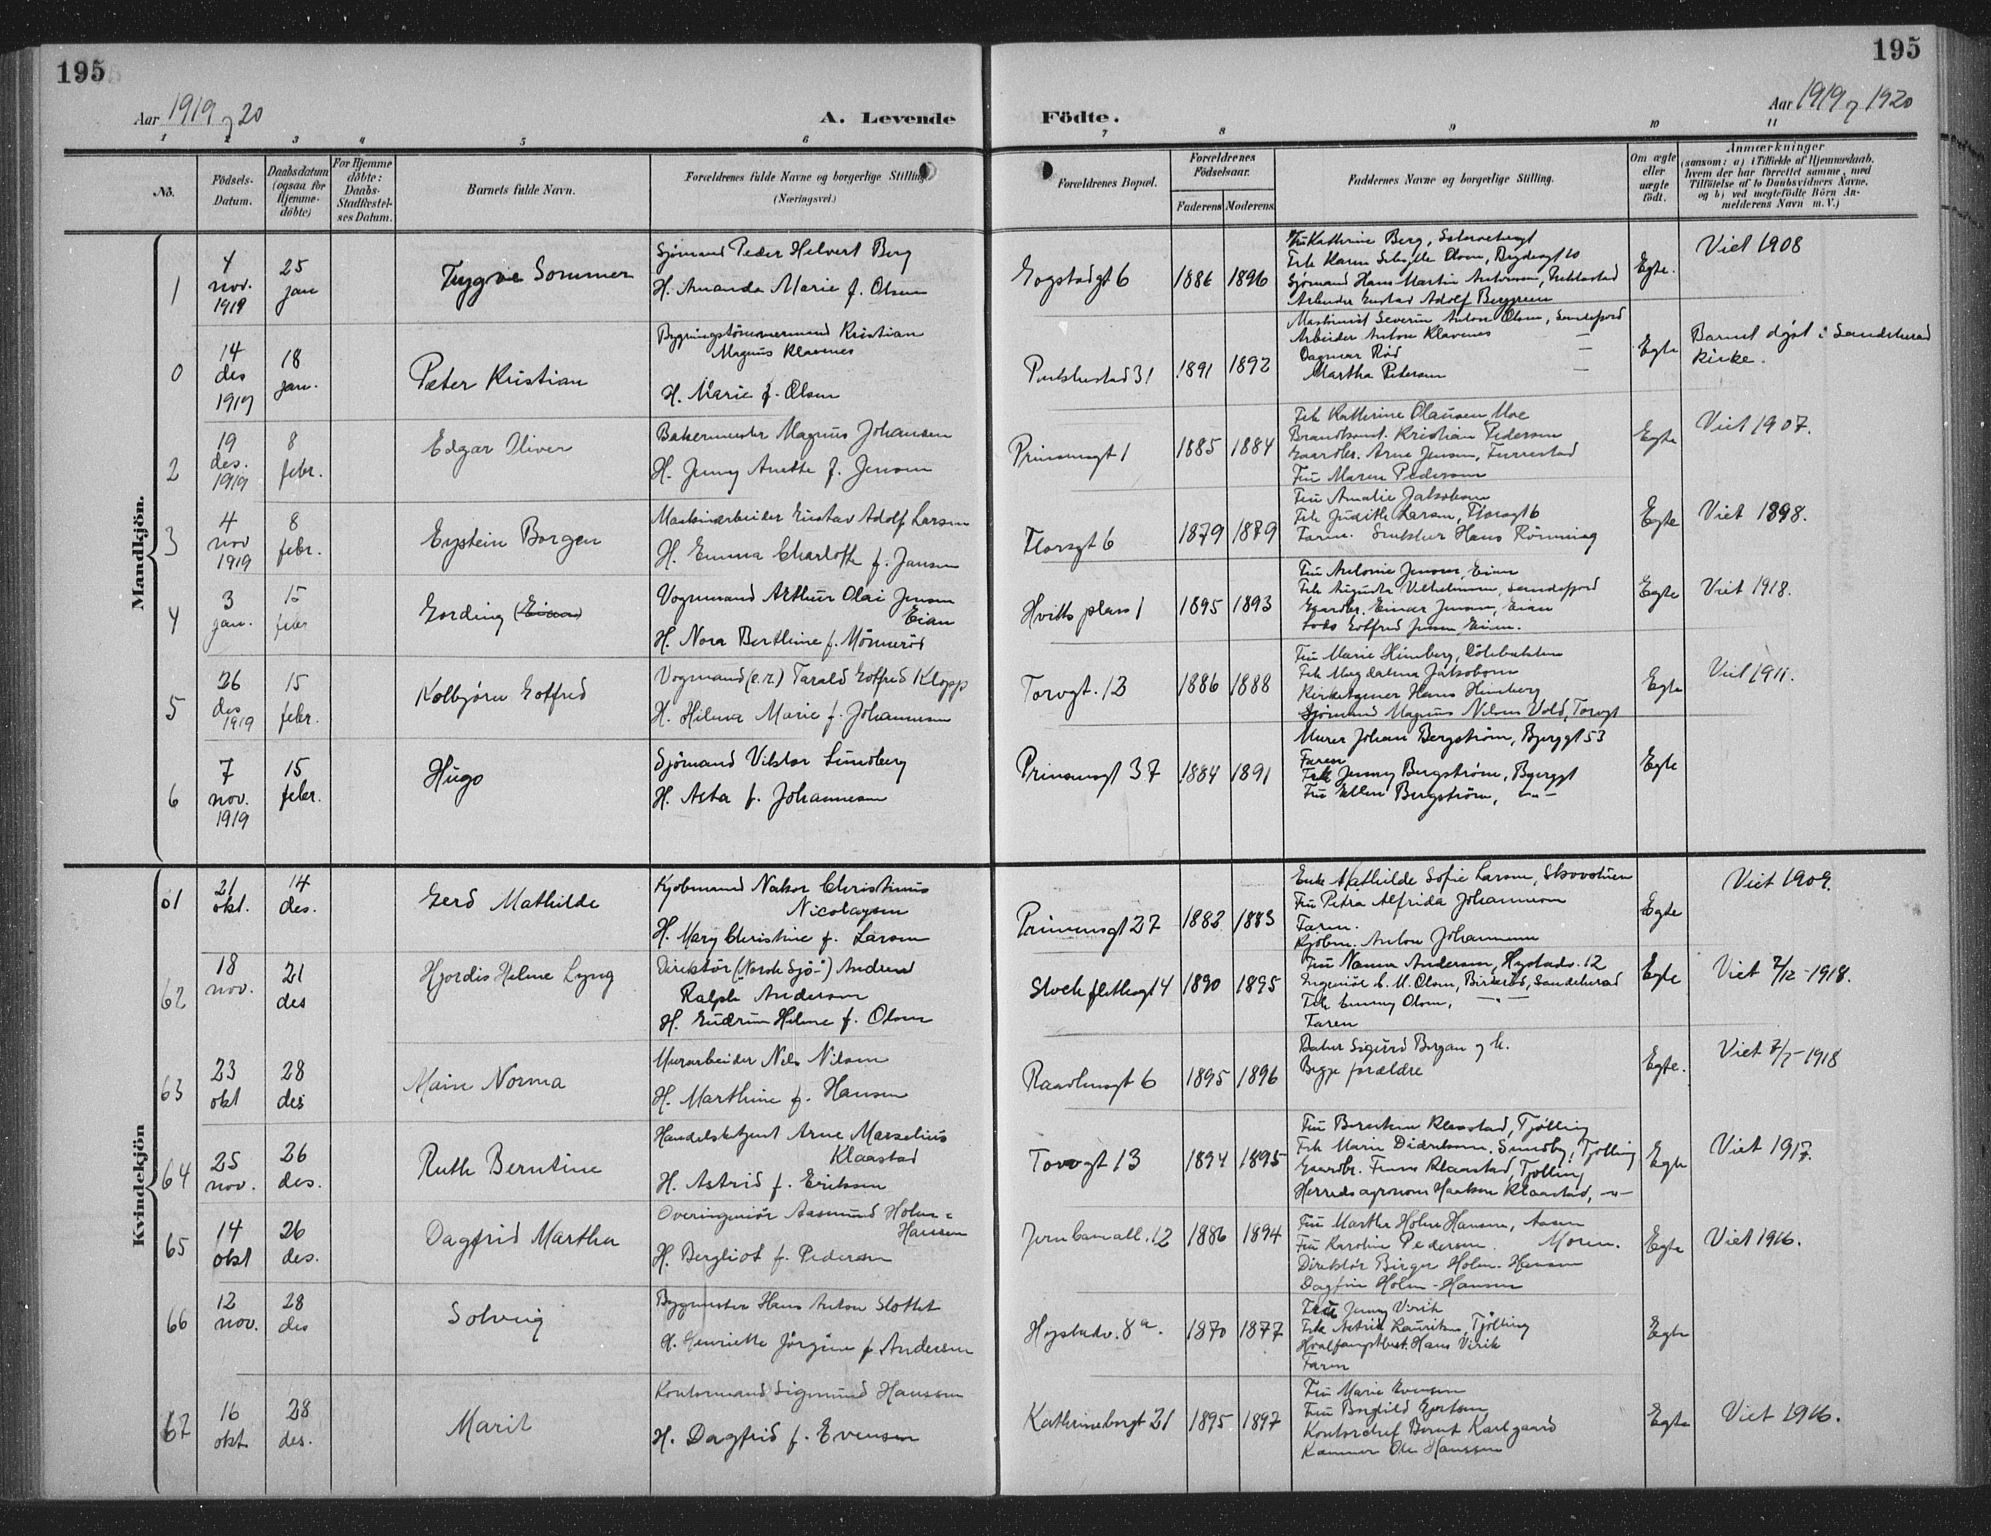 195
195
Aar 1919 og 20
A. Levende
Födte.
Aar 1919 og 1920
1 2 3 4 5 6 7 8 9 10 11
Nö.
Födsels-
Datum.
Daabsdatum
(ogsaa for
Hjemme-
döbte)
For Hjemme
döbte:
Daabs-
Stadfæstel-
ses Datum.
Barnets fulde Navn.
Forældrenes fulde Navne og borgerlige Stilling
(Næringsvei.)
Forældrenes Bopæl.
Forældrenes
Födselsaar.
Faderens Moderens
Faddernes Navne og borgerlige Stilling.
Om ægte
eller
uægte
födt.
Anmærkninger
(saasom: a) i Tilfælde af Hjemmedaab,
hvem der har forrettet samme, med
Tilföielse af to Daabsvidners Navne,
og b) ved uegtefödte Börn An-
melderens Navn m. V.)
Mandkjön.
1
4
nov.
1919
25
jan
Trygve Sommer
Sjømand Peder Helvert Berg
H. Amanda Marie f. Olsen
Gogstadgt 6
1886 1896
Fru Kathrine Berg,
Sjømand Hans Martin
Arbeider Gustav Adolf Berggren
Egte.
Viet 1908
0
14
des
1919
18
jan.
Peter Kristian
Bygningstømmermand Kristian
Magnus Klavenes
H. Marie f. Olsen
1891 1892
Maskinist Severin Anton Olsen, Sandefjord
Arbeider Anton Klavenes —
Dagmar Rød
Martha Pedersen —
Egte
Barnet døpt i Sandeherad
kirke.
2
19
des.
1919
8
febr.
Edgar Oliver
Bakermester Magnus Johansen
H. Jenny Anette f. Jensen
Prinsensgt 1
1885 1884
Frk Kathrine Olausen Moe
Brandkonst. Kristian Pedersen
Gaardbr. Arne Jensen, Furrestad
Fru Maren Pedersen
Egte
Viet 1907.
3
4
nov
1919
8
febr.
Eystein Borgen
Maskinarbeider Gustav Adolf Larsen
H. Emma Charlotte f. Jansen
Florsgt 6
1879 1879
Fru Amalie Jakobsen
Frk Judith Larsen, Florsgt 6
Faren. Hans Rønning
Egte
Viet 1898.
4
3
jan.
15
febr
Gording (Eian)
Vognmand Arthur Olai Jensen
Eian
H. Nora Berthine f. Mønnerød
Hvitts plass 1
1895 1893
Fru Antonie Jensen, Eian
Frk Augusta Vilhelmsen, Sandefjord
Gaardbr. Einar Jensen, Eian
Lods Gotfred Jensen, Eian.
Egte
Viet 1918.
5
26
des
1919
15
febr.
Kolbjørn Gotfred
Vognmand (e.r.) Tarald Gotfred Klopp
H. Hilma Marie f. Johannesen
Torvgt. 13
1886 1888
Fru Marie Himberg,
Frk Magdalena Jakobsen
Kirketjener Hans Himberg
Sjømand Magnus Nilsen Vold, Torvgt
Egte
Viet 1911.
6
7
nov.
1919
15
febr.
Hugo
Sjømand Viktor Lundberg
H. Asta f. Johannesen
Prinsensgt 37
1884 1891
Murer Johan Bergstrøm, Bjerggt 53
Faren
Frk Jenny Bergstrøm, Bjerggt
Fru Ellen Bergstrøm, —"—
Egte
Kvindekjön
61
21
okt.
14
des.
Gerd Mathilde
Kjøbmand Nakor Christinus
Nicolaysen
H. Mary Christine f. Larsen
Prinsensgt 27
1882 1883
Enke Mathilde Sofie Larsen, Skovstuen
Fru Petra Alfrida Johannesen
Faren.
Kjøbm. Anton Johannesen
Egte
Viet 1909.
62
18
nov.
21
des
Hjordis Helene Lyng
Direktør (Norsk Sjø-) Andreas
Ralph Andersen
H. Gudrun Helene f. Olsen
Stockflethsgt 4
1890 1895
Fru Nanna Andersen, Hystadv. 12
Ingeniør C. M. Olsen, Birkerød, Sandeherad
Frk Emmy Olsen, —"—
Faren
Egte
Viet 7/12-1918.
63
23
okt
28
des
Main Norma
Murarbeider Nils Nilsen
H. Marthine f. Hansen
Raadhusgt 6
1895 1896
Baker Sigurd Bergan og h.
Begge forældre
Egte.
Viet 7/7-1918
64
25
nov.
26
des.
Ruth Berntine
Handelsbetjent Arne Marselius
Klaastad
H. Astrid f. Eriksen
Torvgt 13
1894 1895
Fru Berntine Klaastad, Tjølling
Frk Marie Didriksen, Sundby, Tjølling
Gaardbr. Finn Klaastad, Tjølling
Herredsagronom Haakon Klaastad, —"—
Egte
Viet 1917.
65
14
okt
26
des.
Dagfrid Martha
Overingeniør Aasmund Holm-
Hansen
H. Bergliot f. Pedersen
Jernbanealle. 12
1886 1894
Fru Martha Holm Hansen, Aasen
Fru Karoline Pedersen. Moren.
Direktør Birger Holm-Hansen
Dagfin Holm-Hansen
Egte
Viet 1916.
66
12
nov.
28
des
Solveig
Bygmester Hans Anton Slottet
H. Henriette Jørgine f. Andersen
Hystadv. 8a.
1870 1877
Fru Jenny Virik
Frk Astrid Lauritsen, Tjølling
Hvalfangstbest. Hans Virik
Faren
Egte
67
16
okt
28
des.
Marit
Kontormand Sigmund Hanssen
H. Dagfrid f. Evensen
Kathrineborgt 21
1895 1897
Fru Marie Evensen
Fru Borghild Gjertsen
Kontorchef Bernt Karlgaard
Ole Hanssen
Egte
Viet 1916.